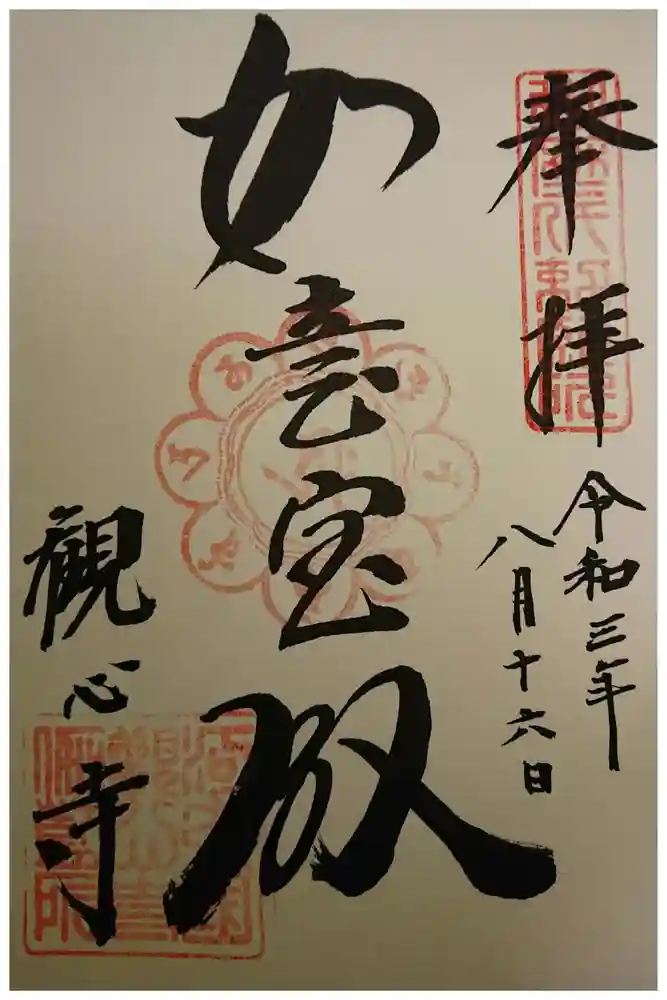 奉拝
令和三年
八月十六日
如意宝殿
観心寺